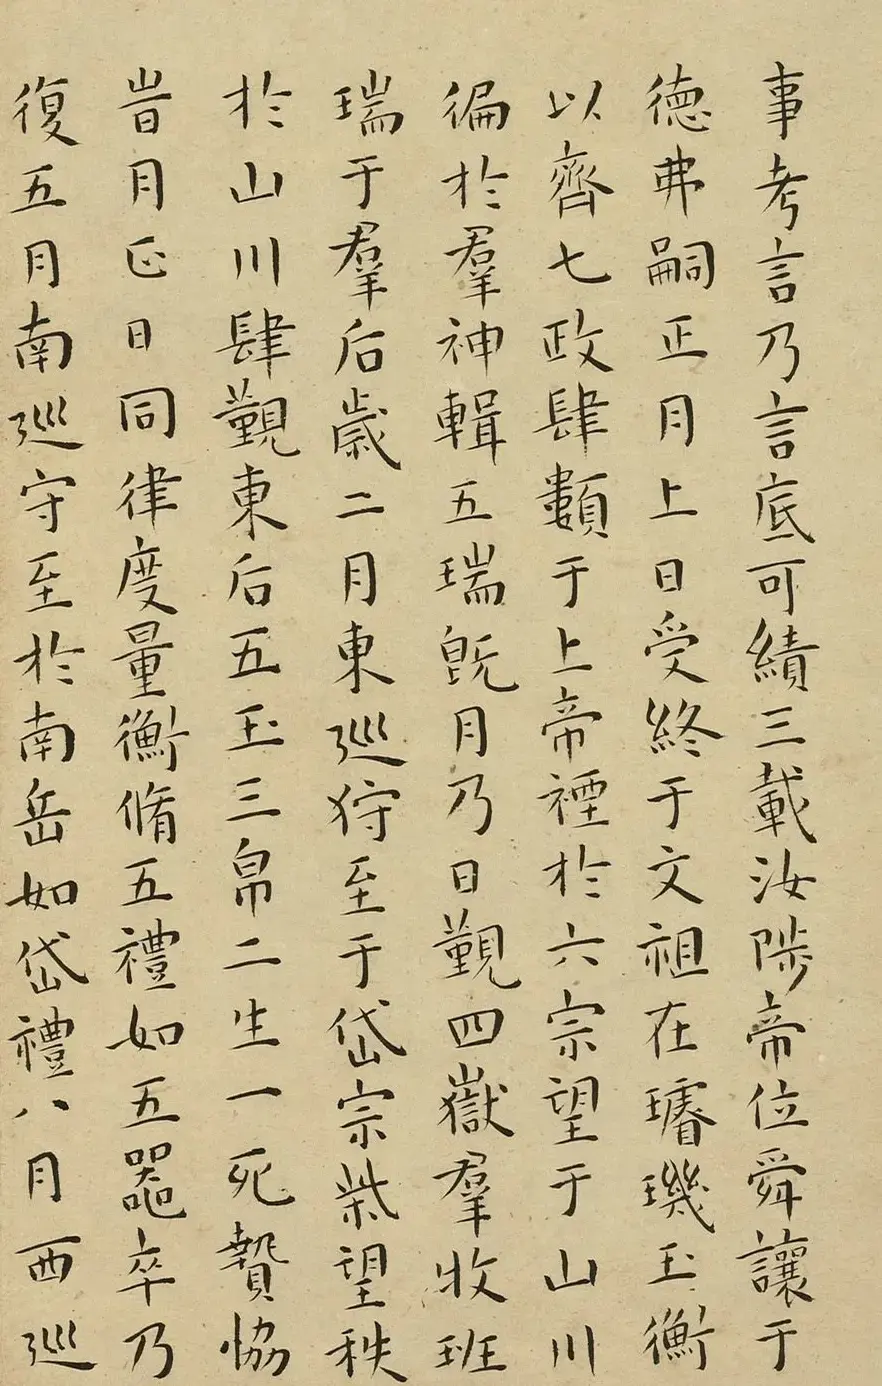 事考言乃言底可績三載汝陟帝位舜讓于
德弗嗣正月上日受終于文祖在璿璣玉衡
以齊七政肆類于上帝禋於六宗望于山川
徧於羣神輯五瑞旣月乃日覲四嶽羣收班
瑞于羣后歲二月東巡狩至于岱宗柴望秩
於山川肆覲東后五玉三帛二生一死贄恊
旹月正日同律度量衡脩五禮如五器卒乃
復五月南巡守至於南岳如岱禮八月西巡